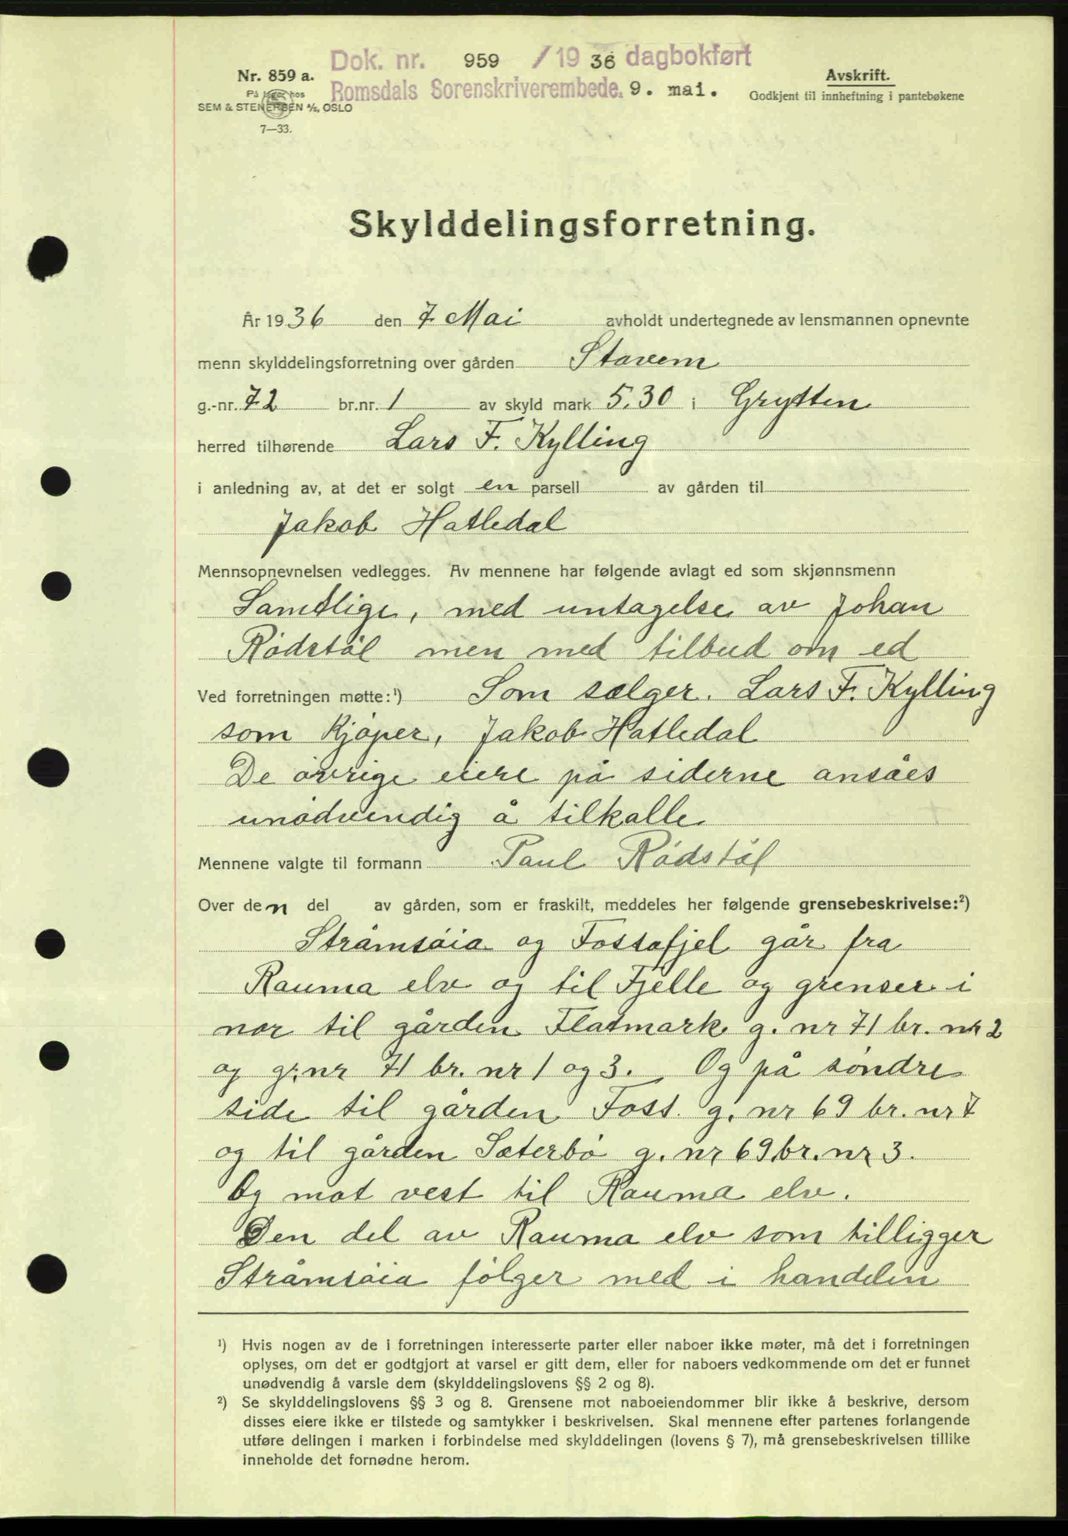 Dok. nr. 959 / 19 36 dagbokført
Romsdals Sorenskriverembede. 9. mai.
Nr. 859 a.
På lager hos
SEM & STENERSEN A/S, OSLO
7—33.
Avskrift.
Godkjent til innheftning i pantebøkene
Skylddelingsforretning.
År 19 36 den 7 Mai avholdt undertegnede av lensmannen opnevnte
menn skylddelingsforretning over gården Stavem
g.-nr. 72 br.nr. 1 av skyld mark 5.30 i Grytten
herred tilhørende Lars F. Kylling
i anledning av, at det er solgt en parsell av gården til
Jakob Hatledal
Mennsopnevnelsen vedlegges. Av mennene har følgende avlagt ed som skjønnsmenn
Samtlige, med untagelse av Johan
Rödstöl men med tilbud om ed
Ved forretningen møtte:¹) Som sælger. Lars F. Kylling
som Kjøper, Jakob Hatledal
De øvrige eiere på siderne ansåes
unödvendig å tilkalle
Mennene valgte til formann Paul Rödstöl
Over den del av gården, som er fraskilt, meddeles her følgende grensebeskrivelse:²)
Strömsöia og Fossafjel går fra
Rauma elv og til Fjelle og grenser i
nor til gården Flatmark g. nr 71 br. nr 2
og g. nr 71 br. nr 1 og 3. Og på söndre
side til gården Foss g. nr 69 br. nr 7
og til gården Sæterbö g. nr 69 br. nr 3.
Og mot vest til Rauma elv.
Den del av Rauma elv som tilligger
Strömsöia fölger med i handelen
¹) Hvis nogen av de i forretningen interesserte parter eller naboer ikke møter, må det i forretningen
oplyses, om det er godtgjort at varsel er gitt dem, eller for naboers vedkommende om det er funnet
unødvendig å varsle dem (skylddelingslovens §§ 2 og 8).
²) Se skylddelingslovens §§ 3 og 8. Grensene mot naboeiendommer blir ikke å beskrive, dersom
disses eiere ikke er tilstede og samtykker i beskrivelsen. Skal mennene efter partenes forlangende
utføre delingen i marken i forbindelse med skylddelingen (lovens § 7), må grensebeskrivelsen tillike
inneholde det fornødne herom.